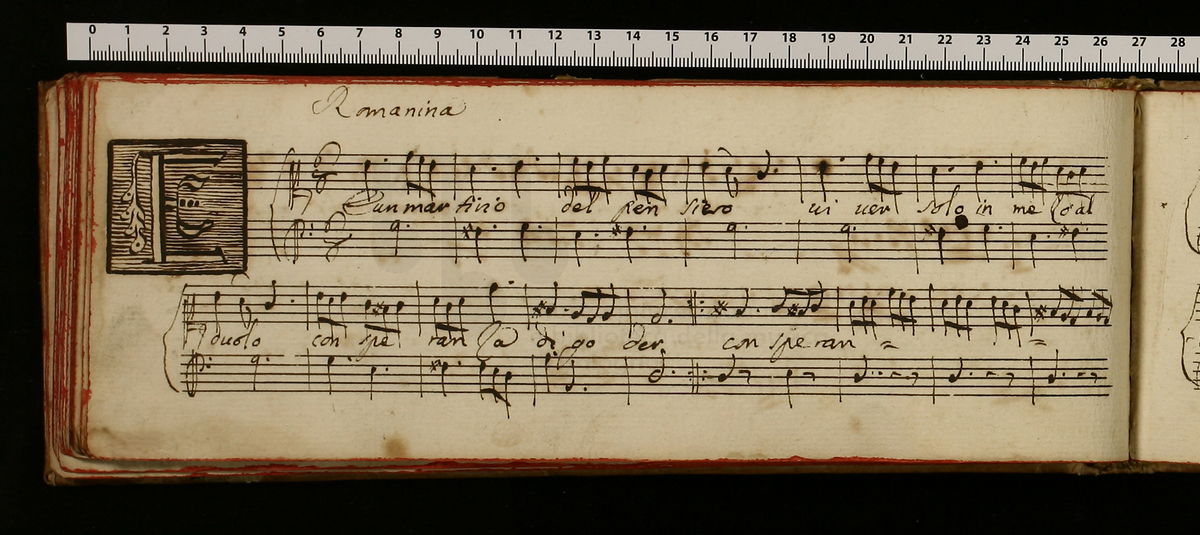 0 1 2 3 4 5 6 7 8 9 10 11 12 13 14 15 16 17 18 19 20 21 22 23 24 25 26 27 28
Romanina
E
È un mar tirio del pen siero ui uer solo in me so al
duolo con spe ran sa di go der con spe ran =  =